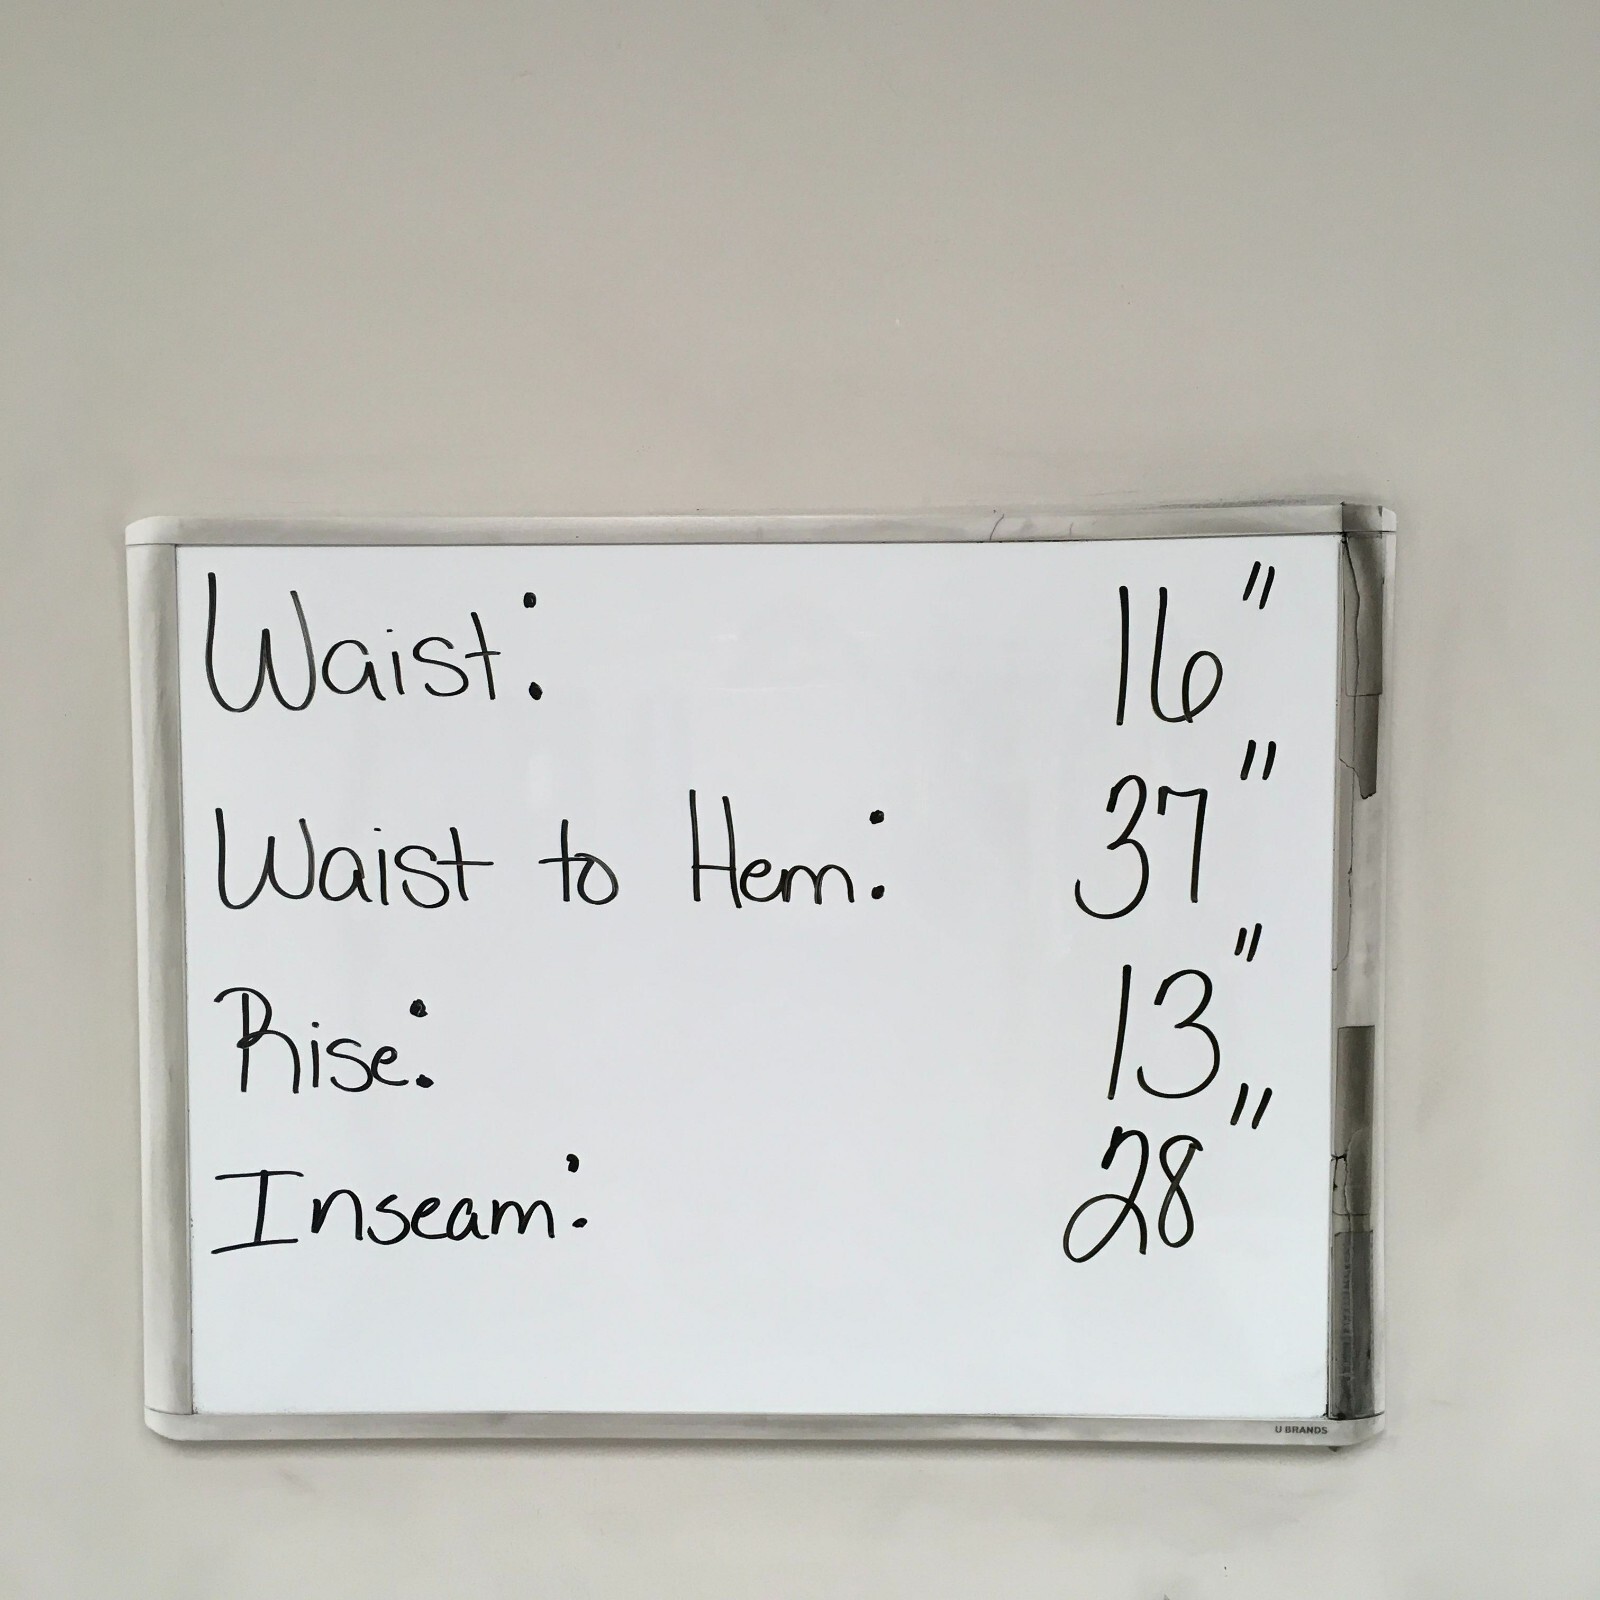 Waist: 16"
Waist to Hem: 37"
Rise: 13"
Inseam: 28"
U BRANDS